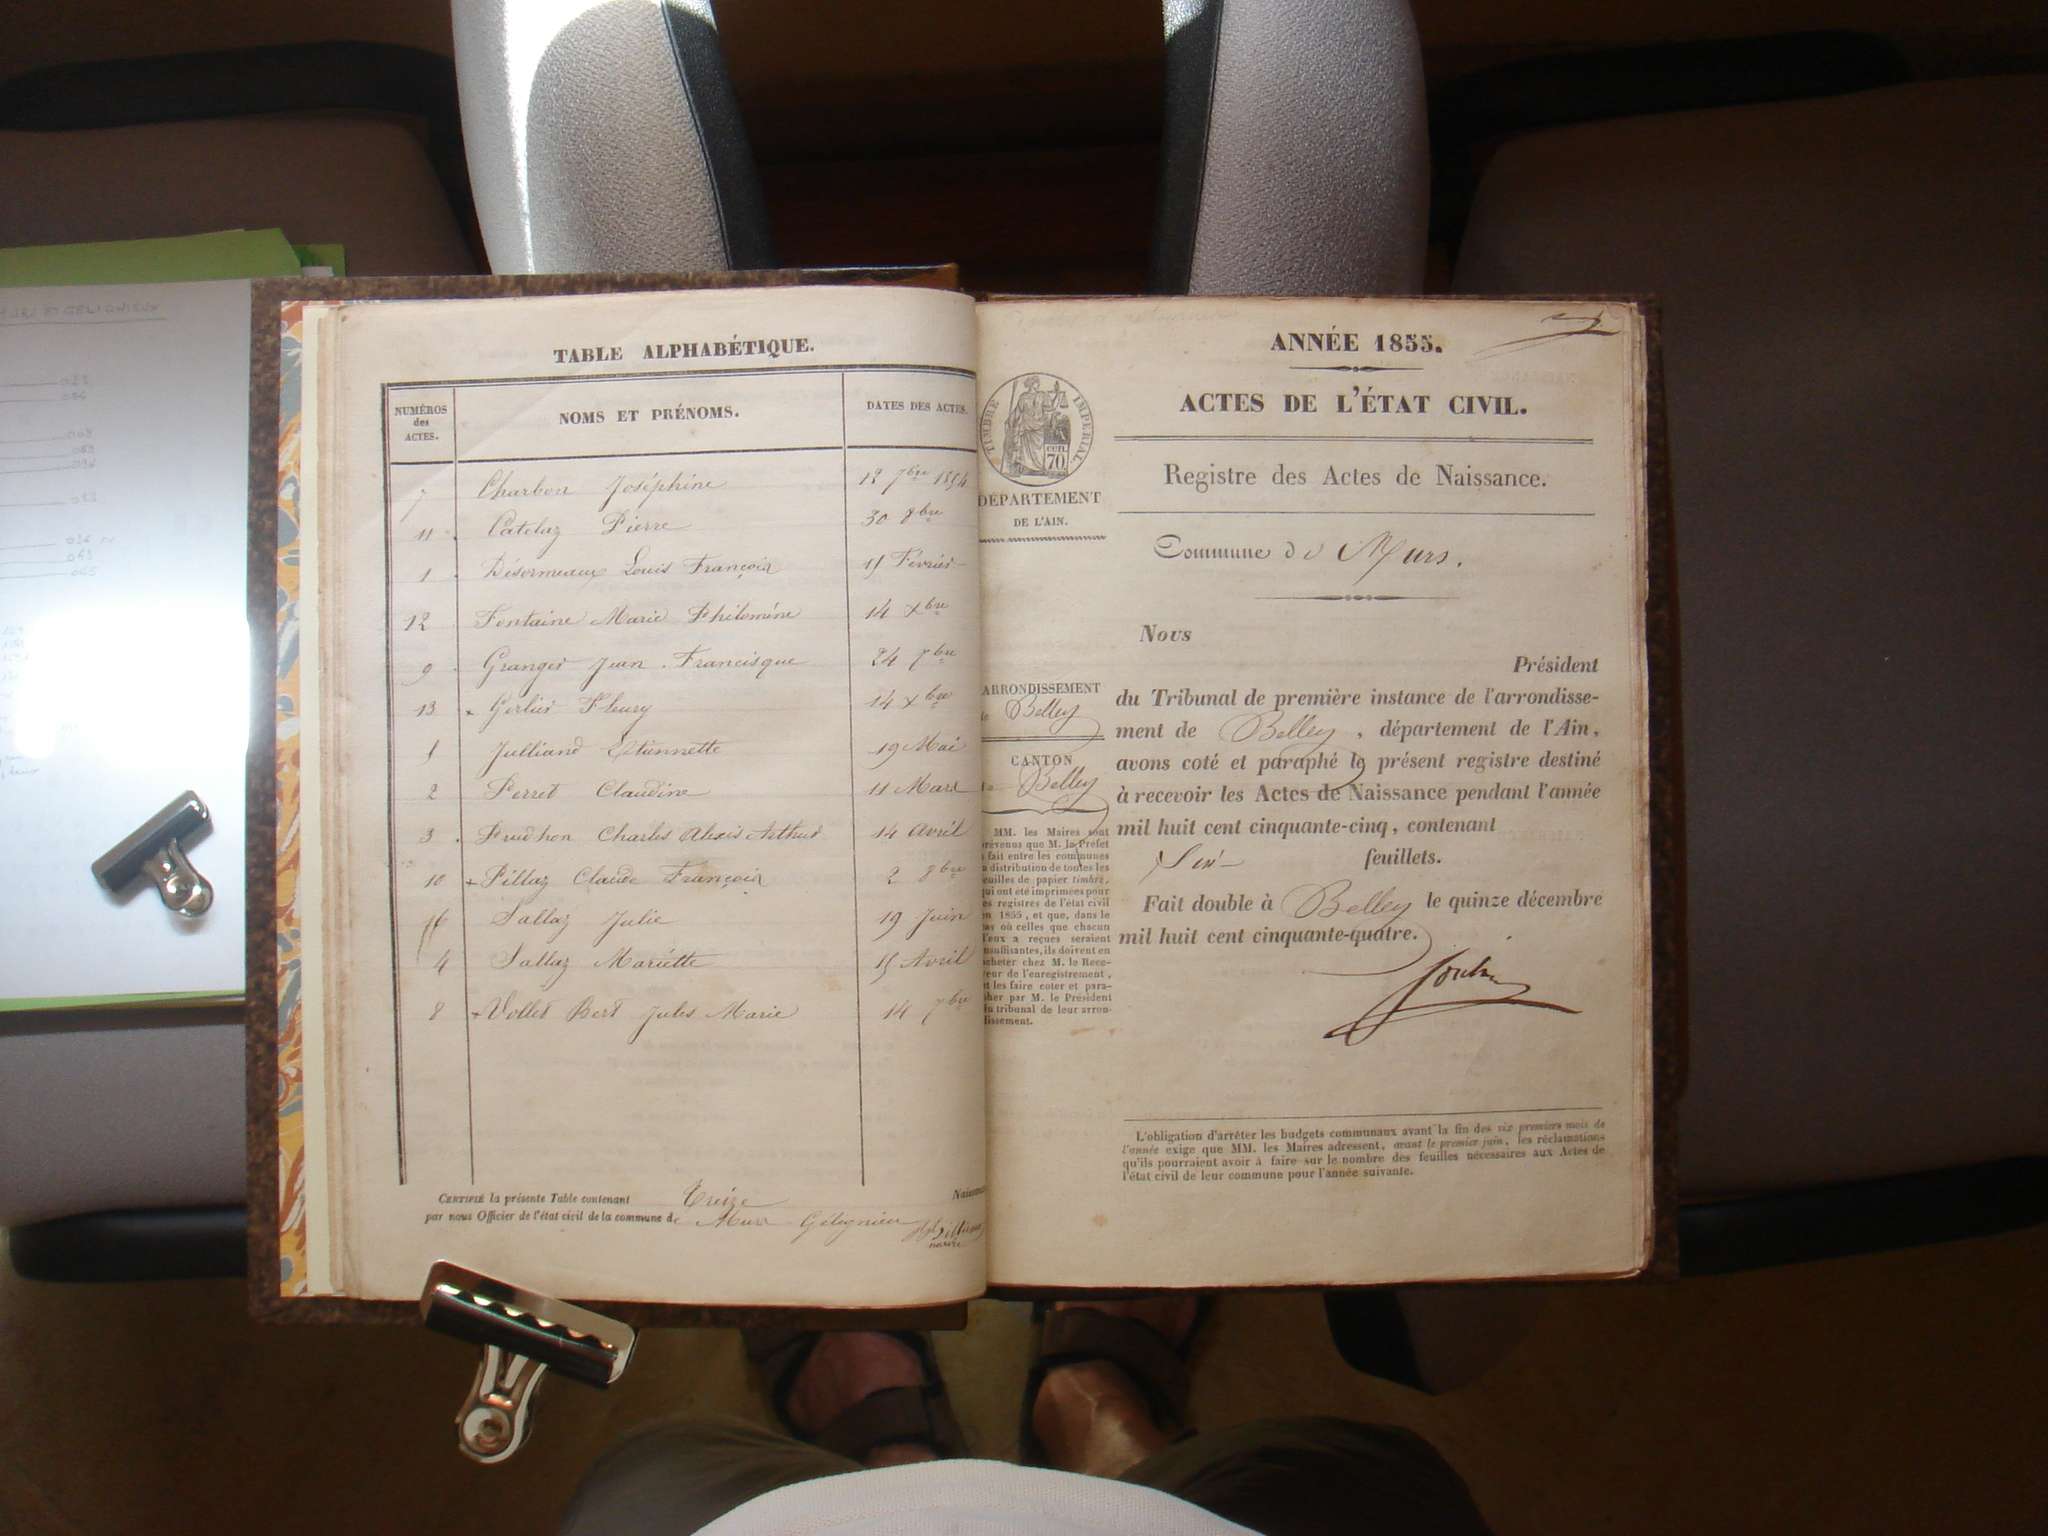 TABLE ALPHABÉTIQUE.
NUMÉROS des ACTES. NOMS ET PRÉNOMS. DATES DES ACTES.
7 Charbon Joséphine 12 7bre 1854
11 Catelaz Pierre 30 8bre
1 Désormeaux Louis François 15 Février
12 Fontaine Marie Philomène 14 xbre
9 Granger Jean Francisque 24 7bre
13 Gerlier Fleury 14 xbre
5 Julliand Etiennette 19 Mai
2 Perret Claudine 11 Mars
3 Prudhon Charles Alexis Arthur 14 Avril
10 Pillaz Claude François 2 8bre
6 Sallaz Julie 19 Juin
4 Sallaz Mariette 15 Avril
8 Vollet Bert Jules Marie 14 7bre
CERTIFIÉ la présente Table contenant Treize
par nous Officier de l'état civil de la commune de Murs Gélignieu
ANNÉE 1855.
ACTES DE L'ÉTAT CIVIL.
TIMBRE IMPÉRIAL
70
Registre des Actes de Naissance.
DÉPARTEMENT
DE L'AIN.
Commune de Murs.
Nous
Président
ARRONDISSEMENT
Belley
CANTON
Belley
du Tribunal de première instance de l'arrondisse-
ment de Belley, département de l'Ain,
avons coté et paraphé le présent registre destiné
à recevoir les Actes de Naissance pendant l'année
mil huit cent cinquante-cinq, contenant
Six feuillets.
Fait double à Belley le quinze décembre
mil huit cent cinquante-quatre.
MM. les Maires sont
prévenus que M. le Préfet
a fait entre les communes
la distribution de toutes les
feuilles de papier timbré,
qui ont été imprimées pour
les registres de l'état civil
en 1855, et que, dans le
cas où celles que chacun
d'eux a reçues seraient
insuffisantes, ils doivent en
acheter chez M. le Rece-
veur de l'enregistrement,
et les faire coter et para-
pher par M. le Président
du tribunal de leur arron-
dissement.
L'obligation d'arrêter les budgets communaux avant la fin des six premiers mois de
l'année exige que MM. les Maires adressent, avant le premier juin, les réclamations
qu'ils pourraient avoir à faire sur le nombre des feuilles nécessaires aux Actes de
l'état civil de leur commune pour l'année suivante.